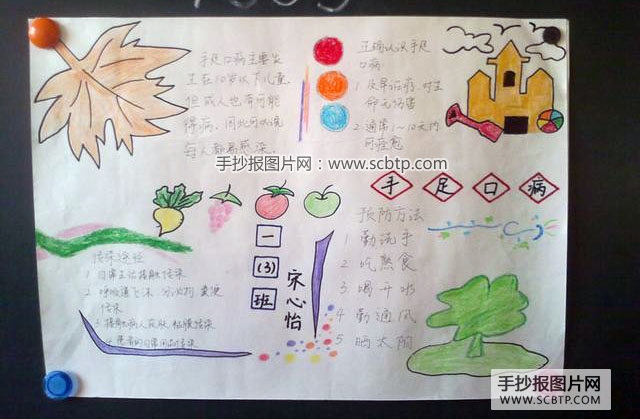 手足口病主要发
生在10岁以下儿童
但成人也有可能
得病，因此可以说
每人都易感染。
正确认识手足
口病
1 及早治疗，对生
命无伤害
2 通常1~10天内
可痊愈
手抄报图片网：www.scbtp.com
手足口病
传染途径
1 日常生活接触传染
2 呼吸道飞沫
传染
3 接触病人
一
(3)
班
宋心怡
预防方法
1 勤洗手
2 吃熟食
3 喝开水
4 勤通风
5 晒太阳
手抄报图片网
WWW.SCBTP.COM